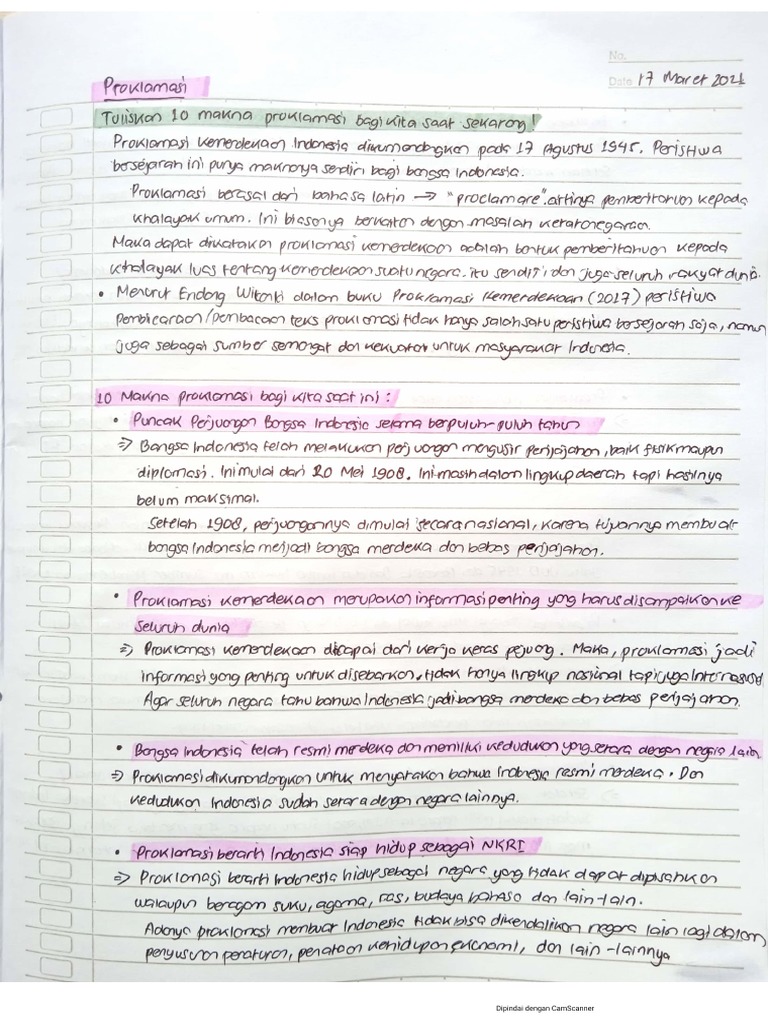 No.
Date 17 Maret 2021
Proklamasi
Tuliskan 10 makna proklamasi bagi kita saat sekarang!
Proklamasi kemerdekaan Indonesia dikumandangkan pada 17 Agustus 1945. Peristiwa
bersejarah ini punya maknanya sendiri bagi bangsa Indonesia.
Proklamasi berasal dari bahasa latin → "proclamare" artinya pemberitahuan kepada
khalayak umum. Ini biasanya berkaitan dengan masalah ketatanegaraan.
Maka dapat dikatakan proklamasi kemerdekaan adalah bentuk pemberitahuan kepada
khalayak luas tentang kemerdekaan suatu negara itu sendiri dan juga seluruh rakyat dunia.
• Menurut Endang Witanti dalam buku Proklamasi Kemerdekaan (2017) peristiwa
pembicaraan/pembacaan teks proklamasi tidak hanya salah satu peristiwa bersejarah saja, namun
juga sebagai sumber semangat dan kekuatan untuk masyarakat Indonesia.
10 Makna proklamasi bagi kita saat ini :
• Puncak Perjuangan Bangsa Indonesia selama berpuluh-puluh tahun
⇒ Bangsa Indonesia telah melakukan perjuangan mengusir penjajahan, baik fisik maupun
diplomasi. Ini mulai dari 20 Mei 1908. Ini masih dalam lingkup daerah tapi hasilnya
belum maksimal.
Setelah 1908, perjuangannya dimulai secara nasional, karena tujuannya membuat
bangsa Indonesia menjadi bangsa merdeka dan bebas penjajahan.
• Proklamasi kemerdekaan merupakan informasi penting yang harus disampaikan ke
seluruh dunia
⇒ Proklamasi kemerdekaan dicapai dari kerja keras pejuang. Maka, proklamasi jadi
informasi yang penting untuk disebarkan, tidak hanya lingkup nasional tapi juga internasional
Agar seluruh negara tahu bahwa Indonesia jadi bangsa merdeka dan bebas penjajahan.
• Bangsa Indonesia telah resmi merdeka dan memiliki kedudukan yang setara dengan negara lain
⇒ Proklamasi dikumandangkan untuk menyatakan bahwa Indonesia resmi merdeka. Dan
kedudukan Indonesia sudah setara dengan negara lainnya.
• Proklamasi berarti Indonesia siap hidup sebagai NKRI
⇒ Proklamasi berarti Indonesia hidup sebagai negara yang tidak dapat dipisahkan
walaupun beragam suku, agama, ras, budaya bahasa dan lain-lain.
Adanya proklamasi membuat Indonesia tidak bisa dikendalikan negara lain lagi dalam
penyusunan peraturan, penataan kehidupan ekonomi, dan lain-lainnya
Dipindai dengan CamScanner